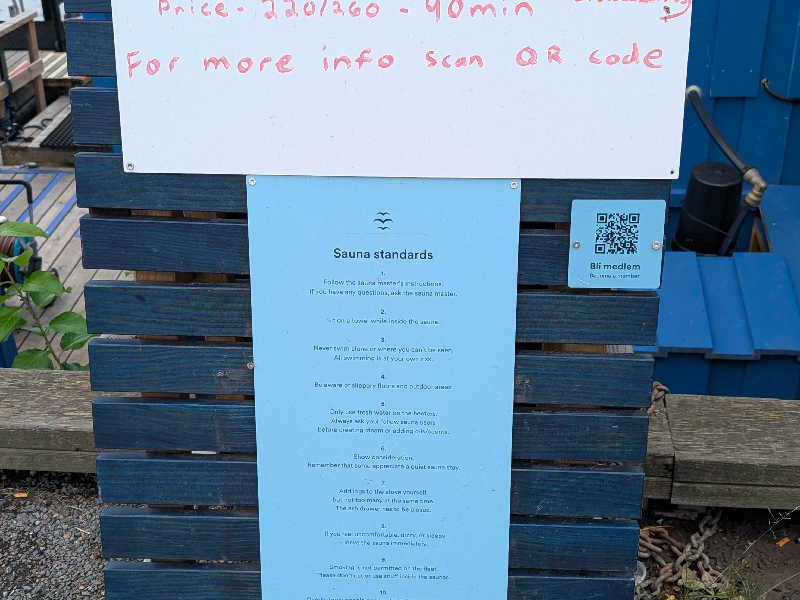 Price - 220/260 - 90min
For more info scan QR code
Sauna standards
1.
Follow the sauna master's instructions.
If you have any questions, ask the sauna master.
2.
Sit on a towel while inside the sauna.
3.
Never swim alone or where you can't be seen.
All swimming is at your own risk.
4.
Be aware of slippery floors and outdoor areas
5.
Only use fresh water on the heaters.
Always ask your fellow sauna users
before creating steam or adding oils/scents.
6.
Show consideration.
Remember that some appreciate a quiet sauna stay.
7.
Add logs to the stove yourself,
but not too many at the same time.
The ash drawer has to be closed.
8.
If you feel uncomfortable, dizzy or sleepy
leave the sauna immediately.
9.
Smoking is not permitted on the fleet.
Please don't eat or use snuff inside the saunas.
10.
Bli medlem
Become a member